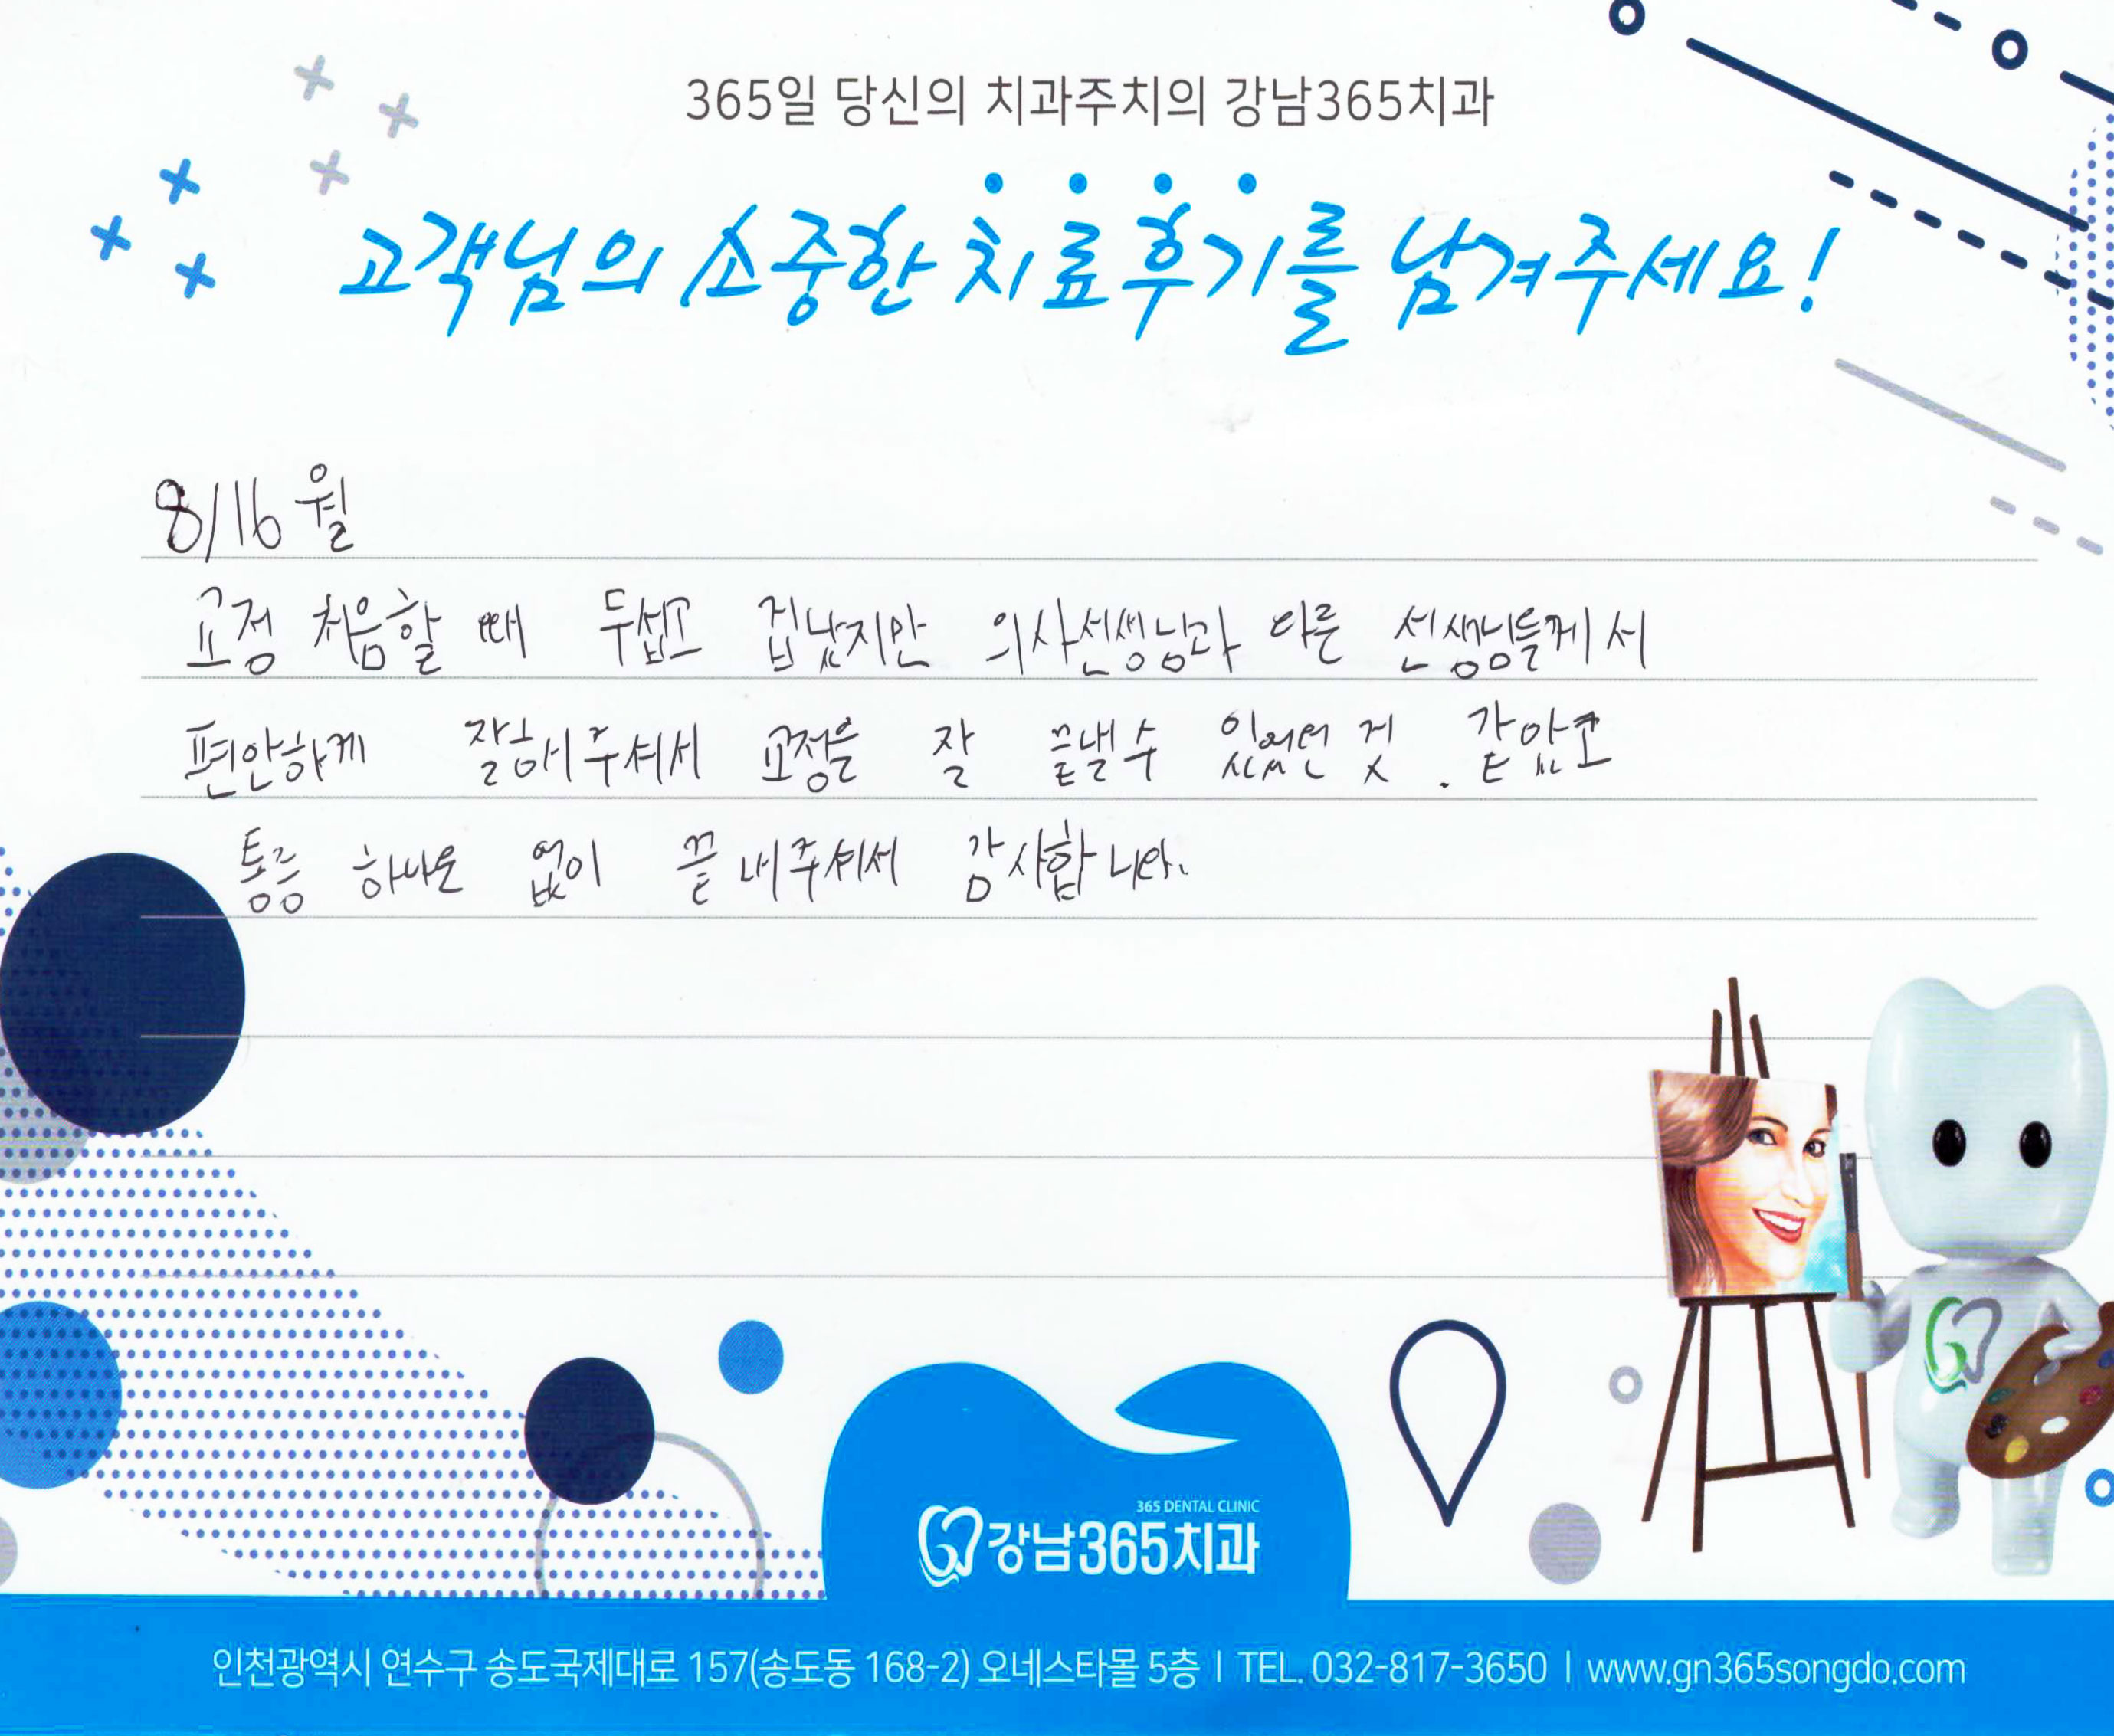 365일 당신의 치과주치의 강남365치과
고객님의 소중한 치료후기를 남겨주세요!
8/16 월
교정 처음할 때 두섭고 겁났지만 의사선생님과 다른 선생님들께서
편안하게 잘해주셔서 교정을 잘 끝낼수 있었던 것 . 같았고
통증 하나도 없이 끝내주셔서 감사합니다.
365 DENTAL CLINIC
강남365치과
인천광역시 연수구 송도국제대로 157(송도동 168-2) 오네스타몰 5층 l TEL. 032-817-3650 l www.gn365songdo.com